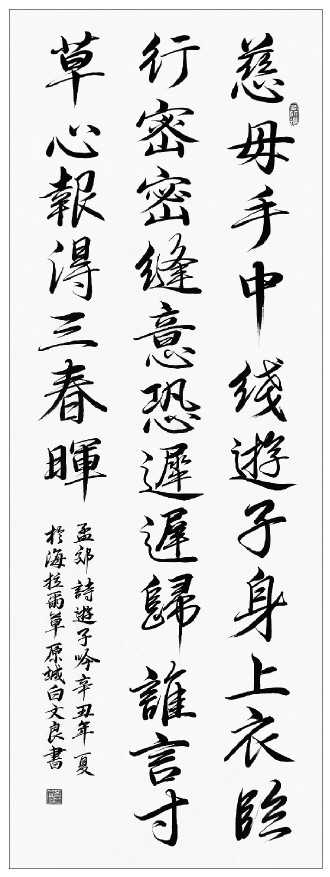 慈母手中綫遊子身上衣臨
行密密縫意恐遲遲歸誰言寸
草心報得三春暉
孟郊詩遊子吟辛丑年夏
於海拉爾草原城白文良書